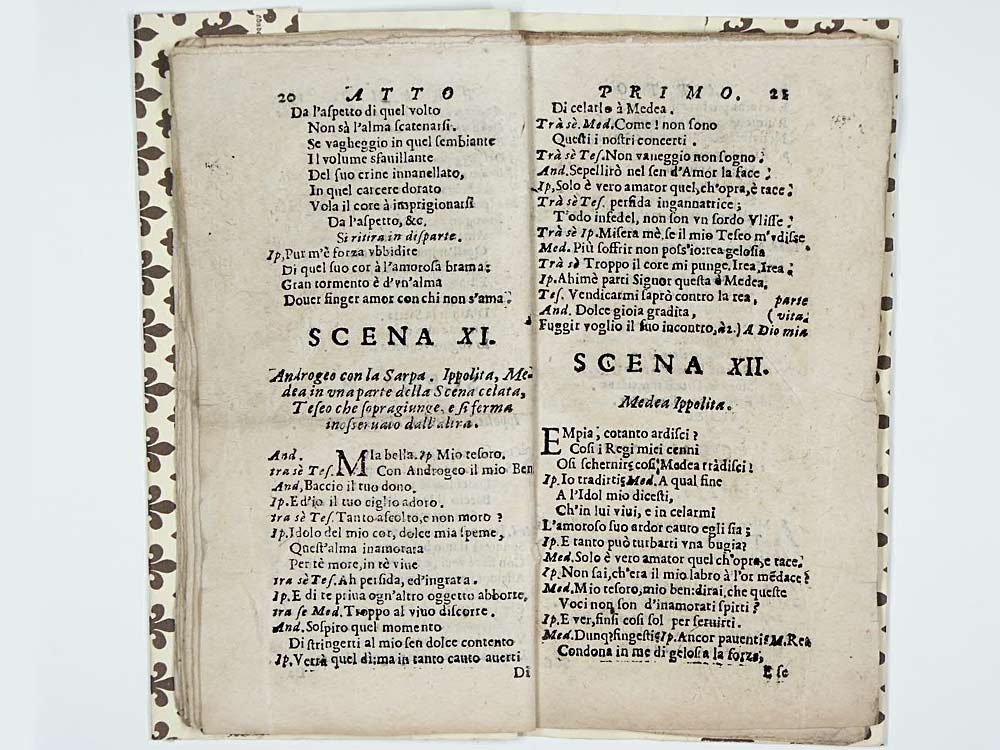 20 ATTO
Da l'aſpetto di quel volto
Non sà l'alma ſcatenarſi.
Se vagheggio in quel ſembiante
Il volume sfauillante
Del ſuo crine innanellato,
In quel carcere dorato
Vola il core à imprigionarſi
Da l'aſpetto, &c.
Si ritira in diſparte.
Ip, Pur m'è forza vbbidire
Di quel ſuo cor à l'amoroſa brama:
Gran tormento è d'vn'alma
Douer finger amor con chi non s'ama.
SCENA XI.
Androgeo con la Sarpa. Ippolita, Me-
dea in vna parte della Scena celata,
Teſeo che ſopragiunge, e ſi ferma
inoſſeruato dall'altra.
And. MIa bella. Ip Mio teſoro.
tra sè Teſ. Con Androgeo il mio Ben
And, Baccio il tuo dono.
Ip. E d'io il tuo ciglio adoro.
tra sè Teſ. Tanto aſcolto, e non moro ?
Ip. Idolo del mio cor, dolce mia ſpeme,
Queſt'alma inamorata
Per tè more, in tè viue
tra sè Teſ. Ah perfida, ed'ingrata.
Ip. E di te priua ogn'altro oggetto abborre.
tra ſe Med. Troppo al viuo diſcorre.
And. Soſpiro quel momento
Di ſtringerti al mio ſen dolce contento
Ip. Verrà quel dì: ma in tanto cauto auerti
Di
PRIMO. 21
Di celarlo à Medea.
Trà sè. Med. Come ! non ſono
Queſti i noſtri concerti .
Trà sè Teſ. Non vaneggio non ſogno ?
And. Sepellirò nel ſen d'Amor la face ;
Ip, Solo è vero amator quel, ch'opra, è tace ;
Trà sè Teſ. perfida ingannatrice ;
T'odo infedel, non ſon vn ſordo Vliſſe ;
Trà sè Ip. Miſera mè, ſe il mio Teſeo m'vdiſſe
Med. Più ſoffrir non poſs'io: rea geloſia
Tra sè Troppo il core mi punge. Irea, Irea ;
Ip. Ahimè parti Signor queſta è Medea.
Teſ. Vendicarmi ſaprò contro la rea, parte
And. Dolce gioia gradita, (vita.
Fuggir voglio il ſuo incontro, à2.) A Dio mia
SCENA XII.
Medea Ippolita.
EMpia, cotanto ardiſci ?
Coſi i Regi miei cenni
Oſi ſchernire coſi, Medea tràdiſci ?
Ip. Io tradirti? Med. A qual fine
A l'Idol mio diceſti,
Ch'in lui viui, e in celarmi
L'amoroſo ſuo ardor cauto egli ſia ;
Ip. E tanto può turbarti vna bugia?
Med. Solo è vero amator quel ch'opra, e tace.
Ip. Non ſai, ch'era il mio labro à l'or mẽdace ?
Med. Mio teſoro, mio ben: dirai, che queſte
Voci non ſon d'inamorati ſpirti ?
Ip. E ver, finſi coſi ſol per ſeruirti.
Med. Dunq; fingeſti? Ip. Ancor pauenti? M. Rea
Condona in me di geloſia la forza,
E ſe